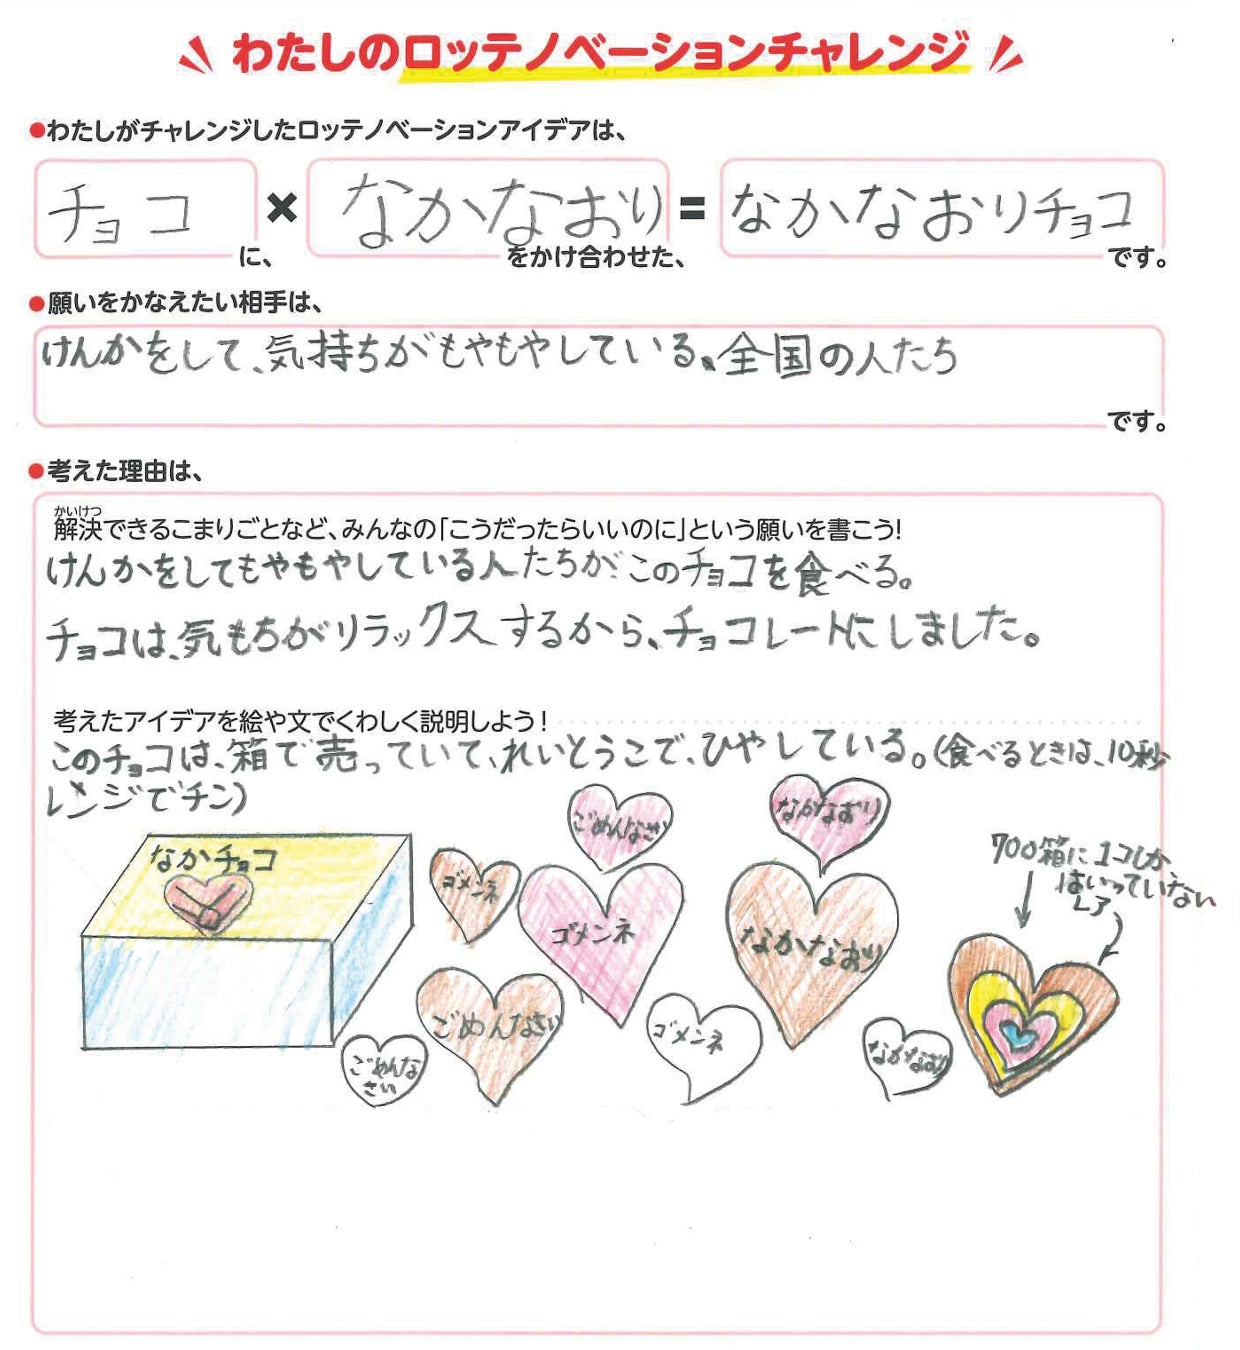 わたしのロッテノベーションチャレンジ
●わたしがチャレンジしたロッテノベーションアイデアは、
チョコ に、 × なかなおり をかけ合わせた、 = なかなおりチョコ です。
●願いをかなえたい相手は、
けんかをして、気持ちがもやもやしている、全国の人たち
です。
●考えた理由は、
かいけつ
解決できるこまりごとなど、みんなの「こうだったらいいのに」という願いを書こう!
けんかをしてもやもやしている人たちがこのチョコを食べる。
チョコは、気もちがリラックスするから、チョコレートにしました。
考えたアイデアを絵や文でくわしく説明しよう!
このチョコは、箱で売っていて、れいとうこで、ひやしている。(食べるときは、10秒
レンジでチン)
ごめんなさい
なかなおり
なかチョコ
700箱に1コしか
はいっていない
レア
ゴメンネ
ゴメンネ
なかなおり
ごめんなさい
ゴメンネ
ごめんな
さい
なかなおり